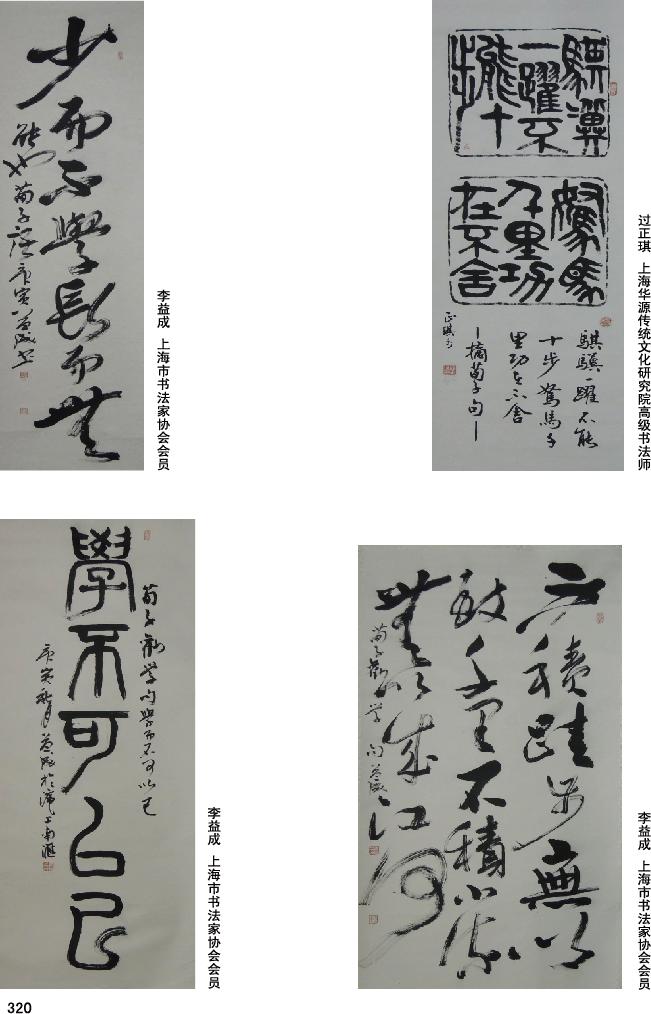 少而不學長而無
能也荀子語庚寅益成书
李益成 上海市书法家协会会员
騏驥
一躍不
能十
步
駑馬
千里功
在不舍
騏驥一躍不能
十步駑馬千
里功在不舍
—摘荀子句—
正琪书
过正琪 上海华源传统文化研究院高级书法师
荀子勸学句學而不可以已
學不可㠯已
庚寅秋月益成於滬上南匯
李益成 上海市书法家协会会员
不積蹞步無以
致千里不積小流
無以成江河
荀子勸学句益成
李益成 上海市书法家协会会员
320